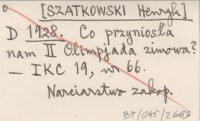 [SZATKOWSKI Henryk]
D 1928. Co przyniosła
nam II Olimpjada zimowa?
– IKC 19, nr 66.
Narciarstwo zakop.